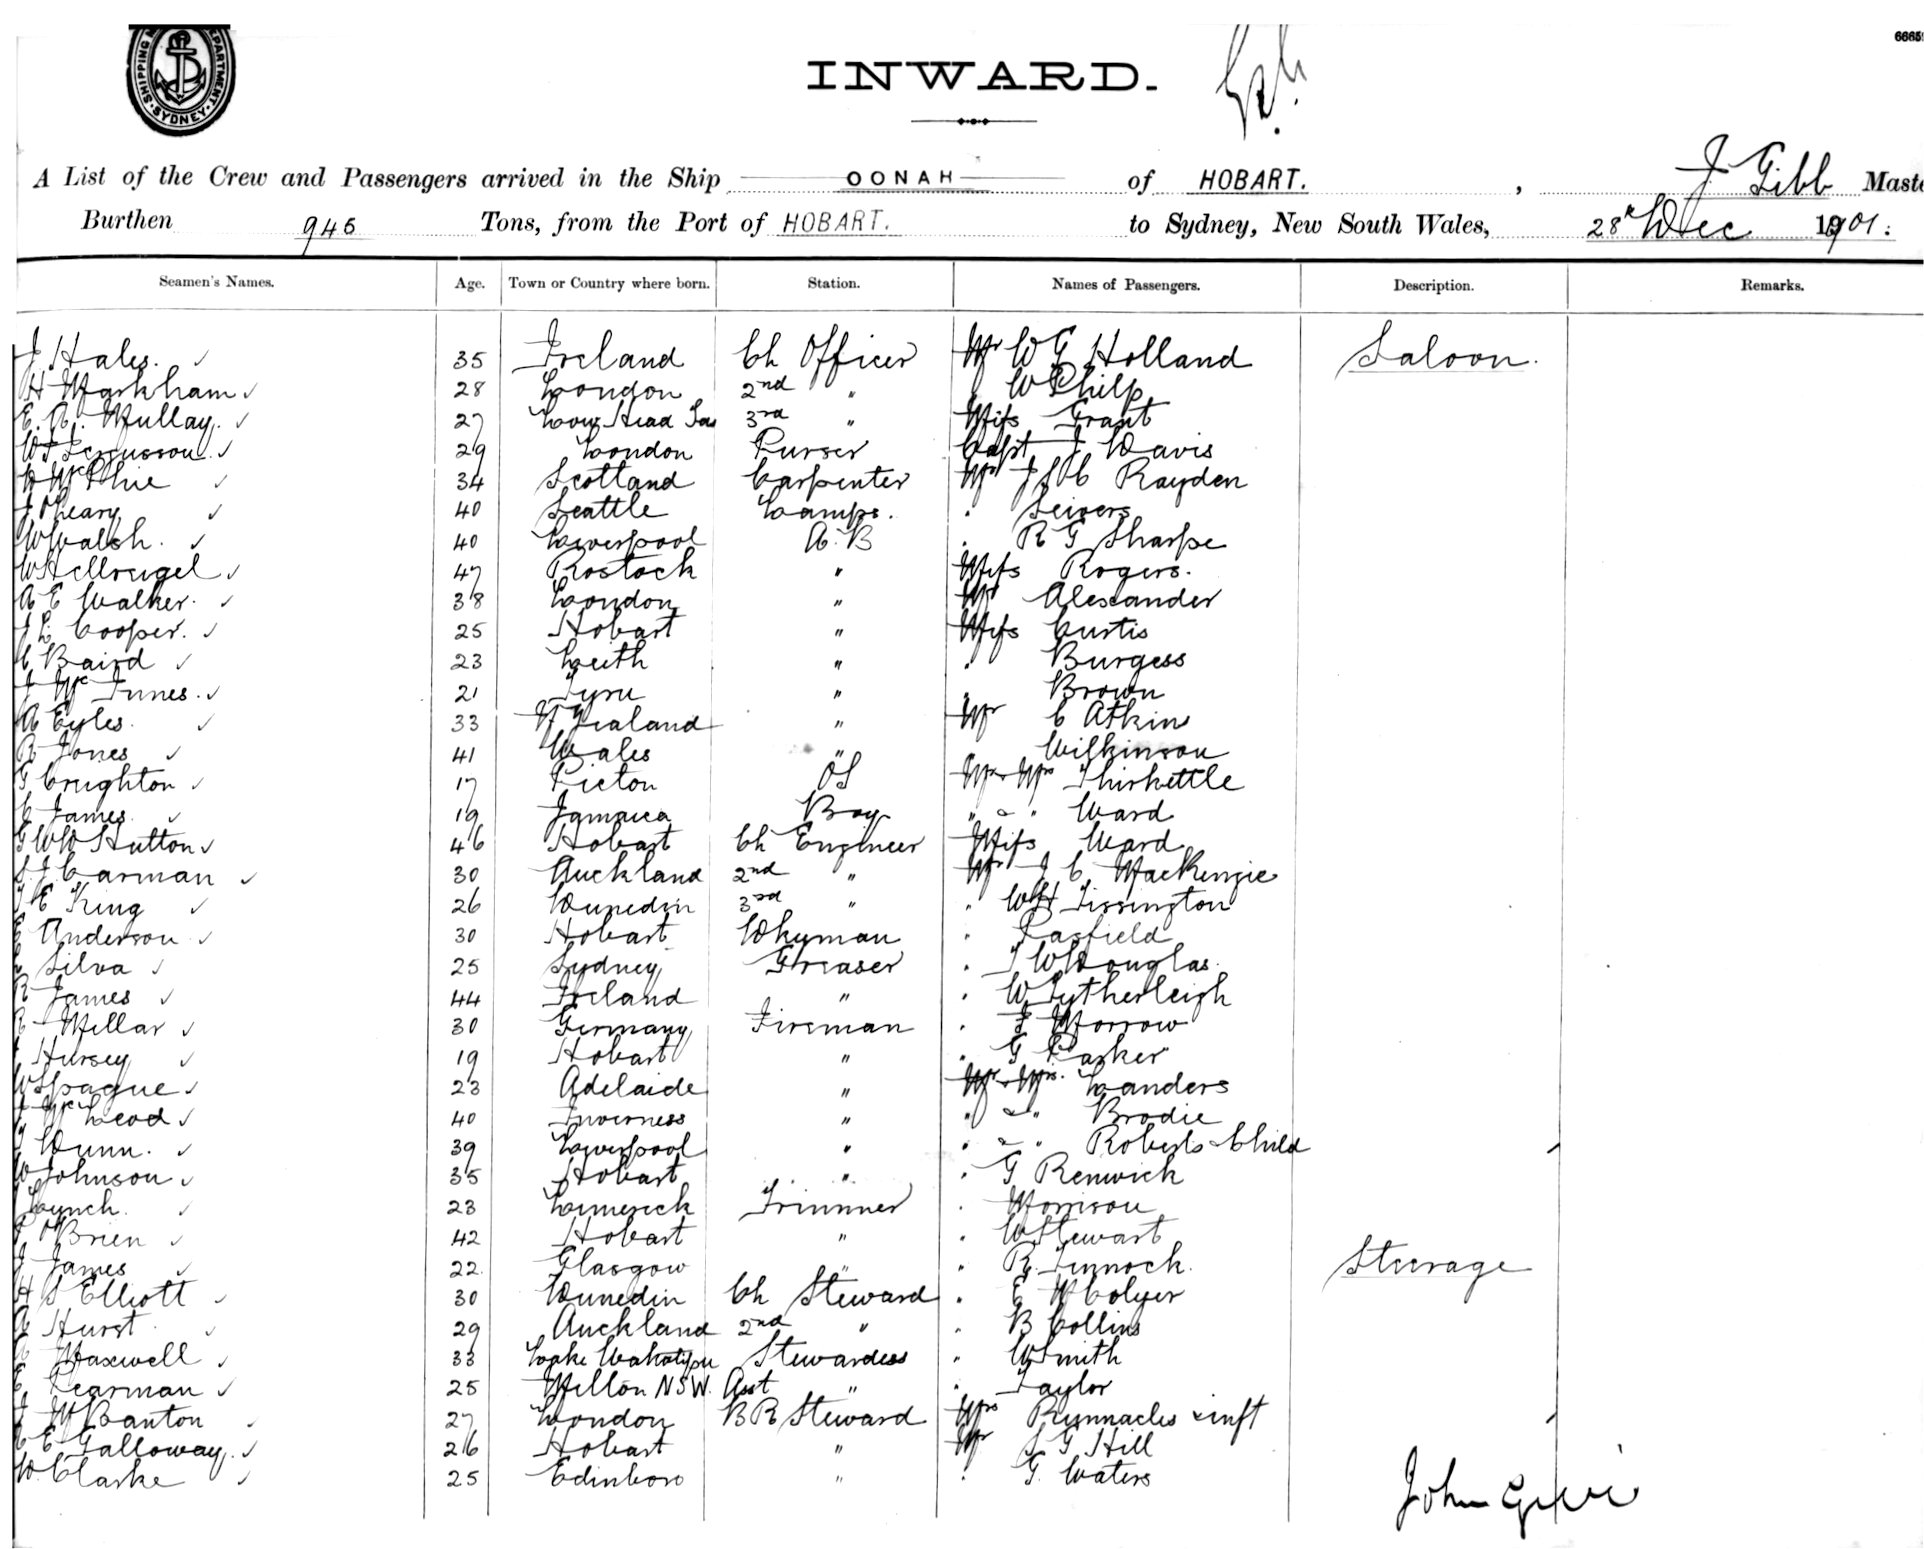 SHIPPING DEPARTMENT. SYDNEY
6665
INWARD.
A List of the Crew and Passengers arrived in the Ship OONAH of HOBART. , J Gibb Maste
Burthen 945 Tons, from the Port of HOBART. to Sydney, New South Wales, 28th Dec 1901.
Seamen's Names. Age. Town or Country where born. Station. Names of Passengers. Description. Remarks.
J Hales. 35 Ireland Ch Officer Mr W G Holland Saloon.
H Markham 28 London 2nd " W Philp
E. A. Mullay. 27 Low Head Tas 3rd " Miss Grant
W J Fergusson 29 London Purser Capt J Davis
McPhie 34 Scotland Carpenter Mr J S C Rayden
J O'Leary 40 Seattle Lamps. " Seivers
W Walsh. 40 Liverpool A.B " R G Sharpe
W Hellreigel 47 Rostock " Miss Rogers.
A E Walker. 38 London " Mr Alexander
J L Cooper. 25 Hobart " Miss Curtis
C Baird 23 Leith " " Burgess
J McInnes. 21 Tyree " " Brown
A Eyles. 33 N Zealand " Mr C Atkins
R Jones 41 Wales " Wilkinson
G Crughton 17 Picton OS Mr & Mrs Thirkettle
C James. 19 Jamaica Boy " & " Ward
G W W Hutton 46 Hobart Ch Engineer Miss Ward
S J Carman 30 Auckland 2nd " Mr J C MacKenzie
E King 26 Dunedin 3rd " " W H Tissington
Anderson 30 Hobart Dkyman " Pasfield
Silva 25 Sydney Greaser " J W Douglas.
R James 44 Ireland " " W Lytherleigh
R Millar 30 Germany Fireman " F Morrow
Hursey 19 Hobart " " G Parker
W Spague 23 Adelaide " Mr & Mrs. Landers
J McLeod 40 Inverness " " & " Brodie
Dunn. 39 Liverpool " " & " Roberts & Child
W Johnson 35 Hobart " " G Renwick
Lynch. 23 Limerick Trimmer " Morrison
O'Brien 42 Hobart " " W Stewart
J James 22. Glasgow " " R. Tinnock. Steerage
H S Elliott 30 Dunedin Ch Steward " E W Colyer
A Hurst 29 Auckland 2nd " " B Collins
Maxwell 33 Lake Wakatipu Stewardess " W Smith
E Pearman 25 Milton NSW. Asst " " Taylor
J W Banton 27 London B R Steward Mrs Rynnacles & inft
E Galloway. 26 Hobart " Mr S G Hill
W. Clarke 25 Edinboro " " G. Waters
John Gibb